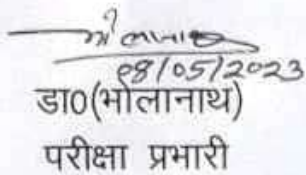 08/05/2023
डा0(भोलानाथ)
परीक्षा प्रभारी